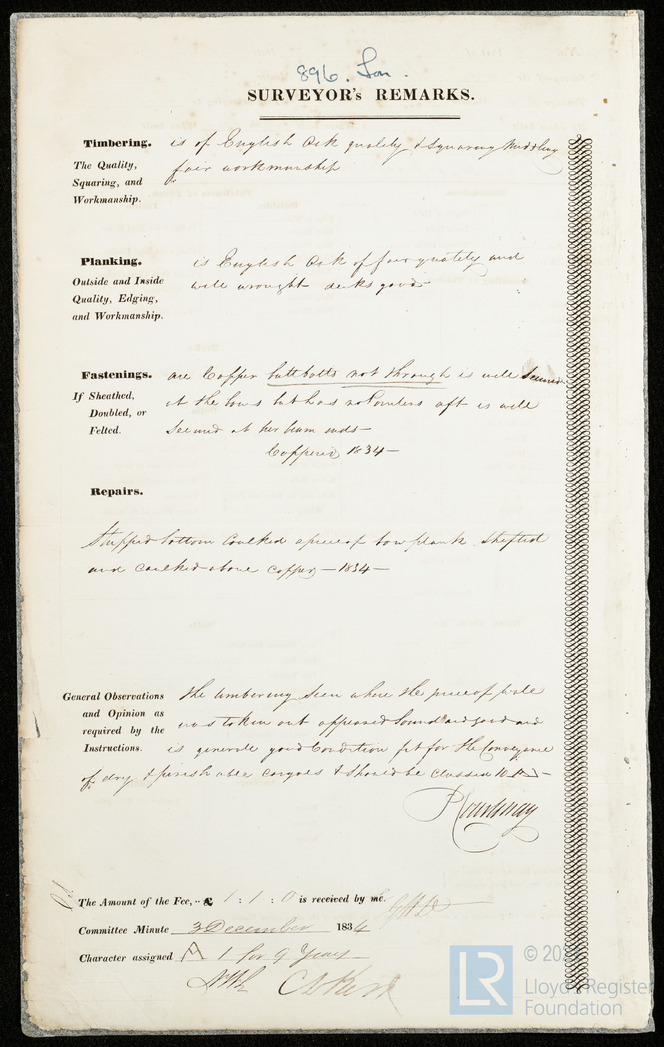 896. Lon.
SURVEYOR's REMARKS.
Timbering. is of English Oak quality & Squaring Middling
The Quality, fair workmanship
Squaring, and
Workmanship.
Planking. is English Oak of fair quality and
Outside and Inside well wrought decks good
Quality, Edging,
and Workmanship.
Fastenings. are Copper butt bolts not through is well Secured
If Sheathed, at the bows but has no Pointers aft is well
Doubled, or Secured at her beam ends
Felted. Coppered 1834
Repairs.
Stripped bottom Caulked a piece of bow plank Shifted
and caulked above copper 1834
General Observations the timbering seen where the piece of wale
and Opinion as was taken out appeared Sound and good and
required by the is generale good Condition fit for the Conveyance
Instructions. of dry & perishable cargoes & Should be Classed 10 A
The Amount of the Fee, £ 1 : 1 : 0 is received by me.
Committee Minute 3 December 1834
Character assigned A 1 for 9 Years
LR
© Lloyd's Register
Foundation